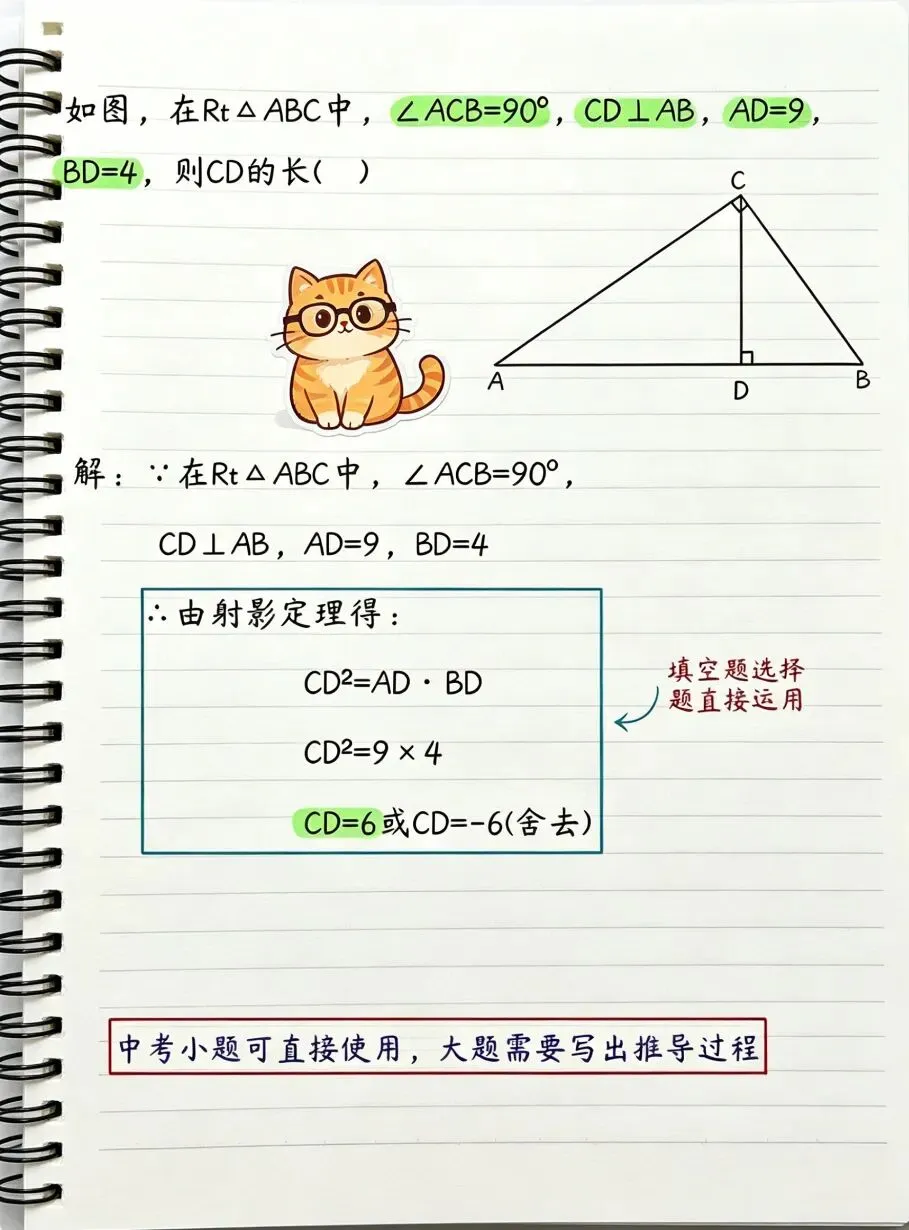 如图，在Rt△ABC中，∠ACB=90°，CD⊥AB，AD=9，
BD=4，则CD的长(　)
C
A
D
B
解：∵在Rt△ABC中，∠ACB=90°，
CD⊥AB，AD=9，BD=4
∴由射影定理得：
CD²=AD·BD
CD²=9×4
CD=6或CD=-6(舍去)
填空题选择
题直接运用
中考小题可直接使用，大题需要写出推导过程